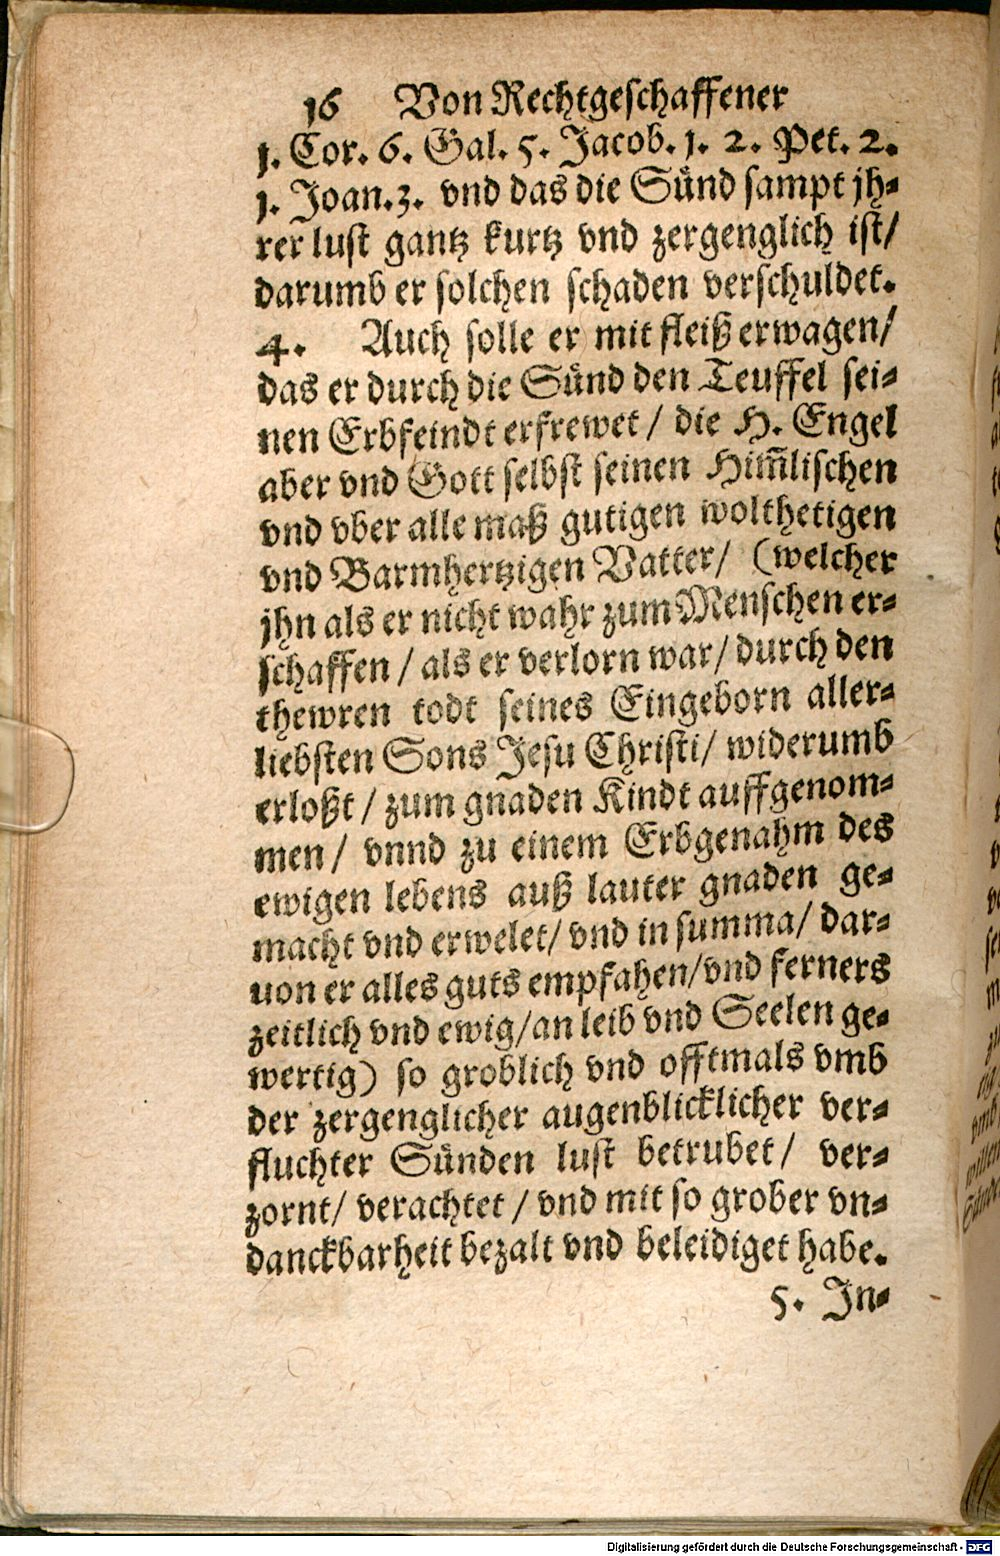 16 Von Rechtgeschaffener
1. Cor. 6. Gal. 5. Jacob. 1. 2. Pet. 2.
1. Joan. 3. vnd das die Sünd sampt jh-
rer lust gantz kurtz vnd zergenglich ist/
darumb er solchen schaden verschuldet.
4. Auch solle er mit fleiß erwagen/
das er durch die Sünd den Teuffel sei-
nen Erbfeindt erfrewet / die H. Engel
aber vnd Gott selbst seinen Him̃lischen
vnd vber alle maß gutigen wolthetigen
vnd Barmhertzigen Vatter/ (welcher
jhn als er nicht wahr zum Menschen er-
schaffen / als er verlorn war/ durch den
thewren todt seines Eingeborn aller-
liebsten Sons Jesu Christi/ widerumb
erloßt / zum gnaden Kindt auffgenom-
men / vnnd zu einem Erbgenahm des
ewigen lebens auß lauter gnaden ge-
macht vnd erwelet/ vnd in summa/ dar-
uon er alles guts empfahen/vnd ferners
zeitlich vnd ewig/an leib vnd Seelen ge-
wertig) so groblich vnd offtmals vmb
der zergenglicher augenblicklicher ver-
fluchter Sünden lust betrubet / ver-
zornt/ verachtet / vnd mit so grober vn-
danckbarheit bezalt vnd beleidiget habe.
5. In-
Digitalisierung gefördert durch die Deutsche Forschungsgemeinschaft - DFG